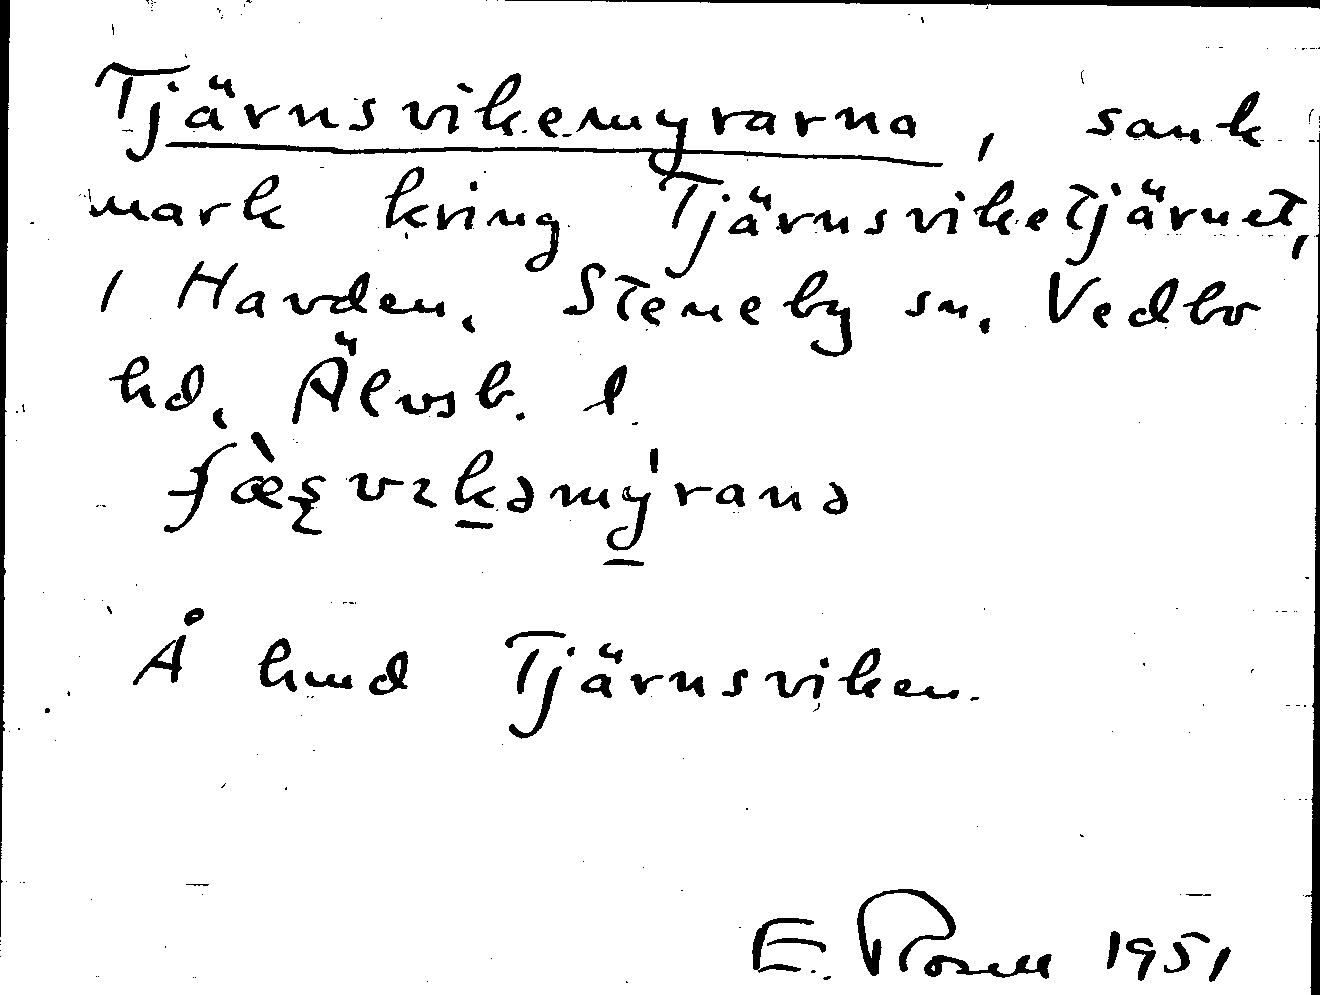 Tjärnsvikemyrarna, sank
mark kring Tjärnsviketjärnet,
i Havden. Steneby sn. Vedbo
hd. Älvsb. l
ʃæ̀ʂvɪkəmýranə
Å hmd Tjärnsviken.
E. Rosell 1951